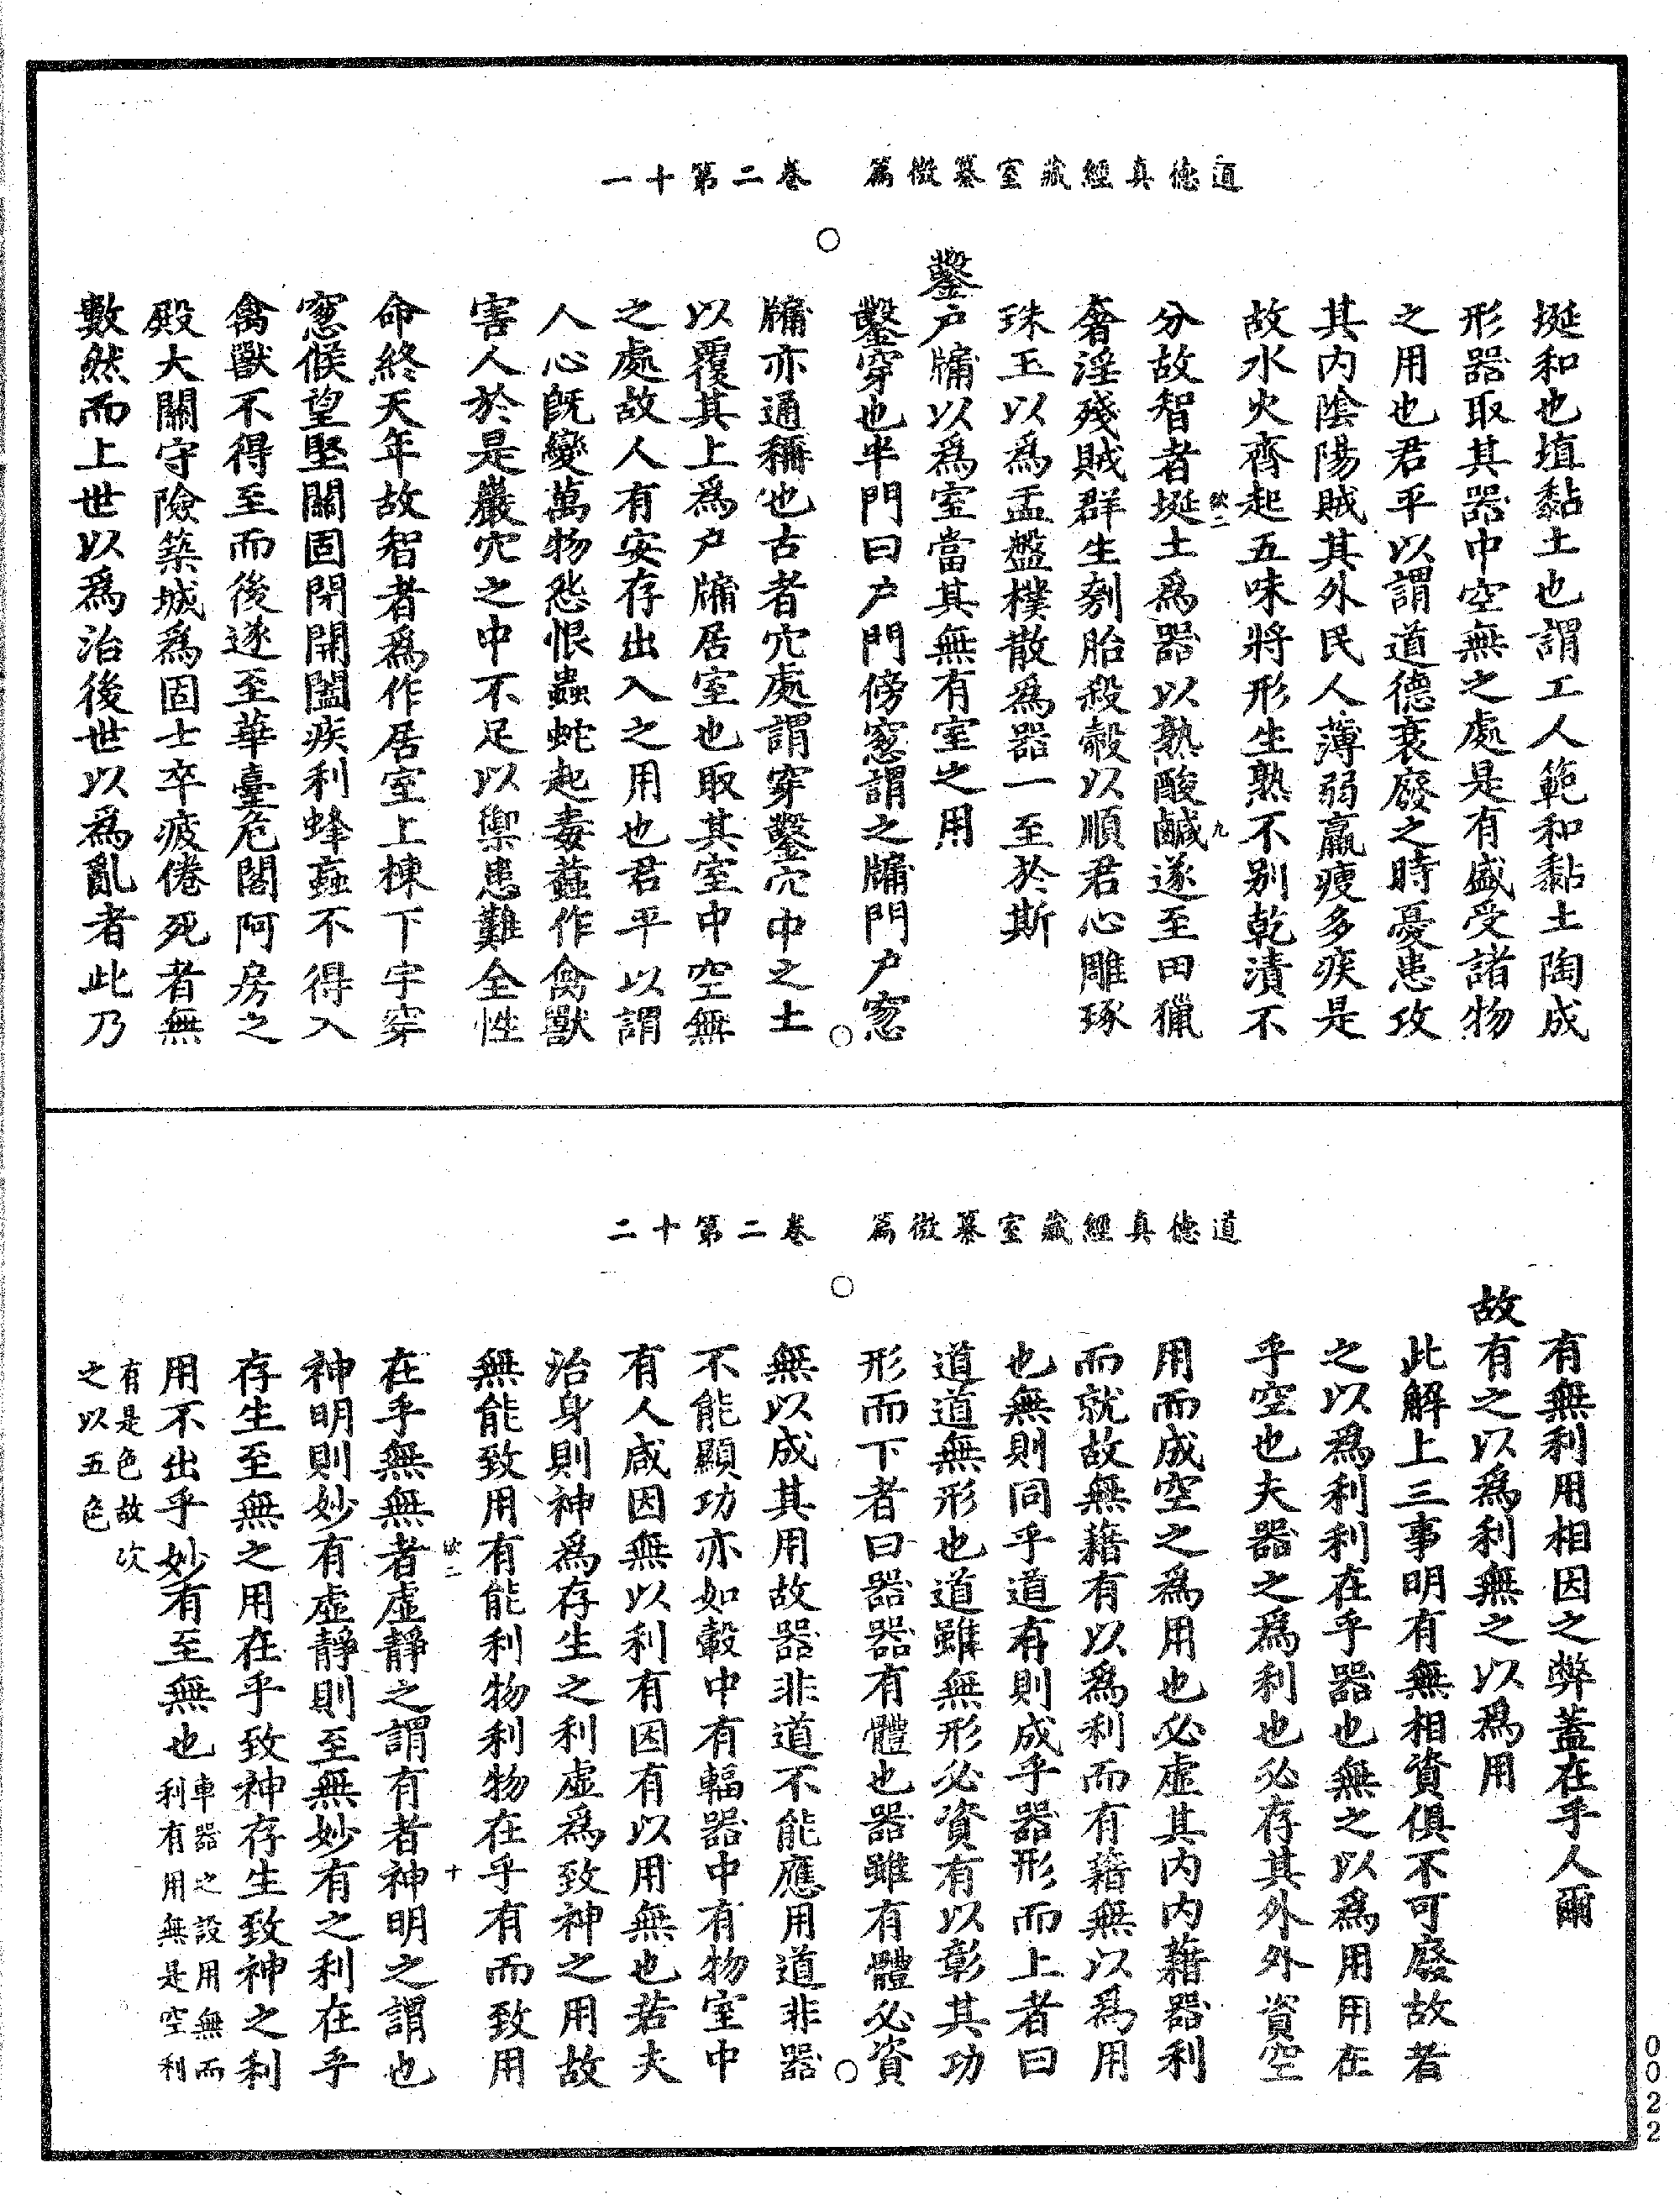 道德真經藏室纂微篇　卷二第十一
埏和也埴黏土也謂工人範和黏土陶成
形器取其器中空無之處是有盛受諸物
之用也君平以謂道德衰廢之時憂患攻
其內陰陽賊其外民人薄弱羸瘦多疾是
故水火齊起五味將形生熟不別乾漬不
欲二　九
分故智者埏土為器以熟酸鹹遂至田獵
奢淫殘賊群生刳胎殺㲉以順君心雕琢
珠玉以為盂盤樸散為器一至於斯
鑿戶牖以為室當其無有室之用
鑿穿也半門曰戶門傍窻謂之牖門戶窻
牖亦通稱也古者穴處謂穿鑿穴中之土
以覆其上為戶牖居室也取其室中空無
之處故人有安存出入之用也君平以謂
人心旣變萬物恐恨蟲蛇起毒蠚作禽獸
害人於是巖穴之中不足以禦患難全性
命終天年故智者為作居室上棟下宇穿
窻候望堅關固閉開闔疾利蜂蠆不得入
禽獸不得至而後遂至華臺危閣阿房之
殿大關守險築城為固士卒疲倦死者無
數然而上世以為治後世以為亂者此乃
道德真經藏室纂微篇　卷二第十二
有無利用相因之弊蓋在乎人爾
故有之以為利無之以為用
此解上三事明有無相資俱不可廢故者
之以為利利在乎器也無之以為用用在
乎空也夫器之為利也必存其外外資空
用而成空之為用也必虛其內內藉器利
而就故無藉有以為利而有藉無以為用
也無則同乎道有則成乎器形而上者曰
道道無形也道雖無形必資有以彰其功
形而下者曰器器有體也器雖有體必資
無以成其用故器非道不能應用道非器
不能顯功亦如轂中有輻器中有物室中
有人咸因無以利有因有以用無也若夫
治身則神為存生之利虛為致神之用故
無能致用有能利物利物在乎有而致用
欲二　十
在乎無無者虛靜之謂有者神明之謂也
神明則妙有虛靜則至無妙有之利在乎
存生至無之用在乎致神存生致神之利
用不出乎妙有至無也車器之設用無而利有用無是空利
有是色故次之以五色
0022